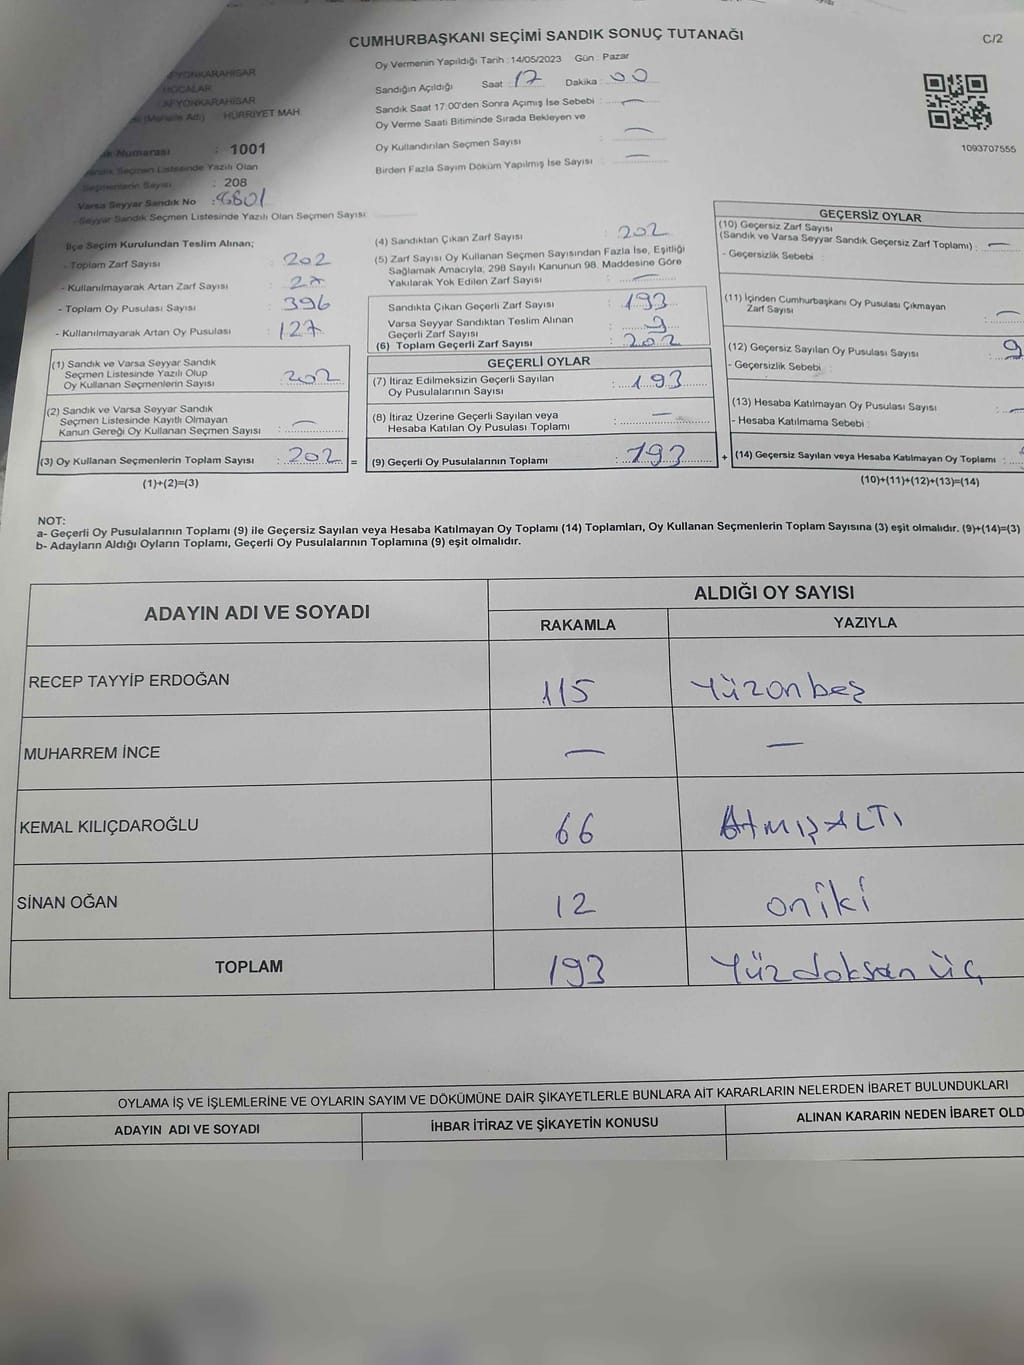 CUMHURBAŞKANI SEÇİMİ SANDIK SONUÇ TUTANAĞI
C/2
AFYONKARAHİSAR
HOCALAR
AFYONKARAHİSAR
(Mahalle Adı) HÜRRİYET MAH.
Numarası : 1001
Sandık Seçmen Listesinde Yazılı Olan
Seçmenlerin Sayısı : 208
Varsa Seyyar Sandık No :
- Seyyar Sandık Seçmen Listesinde Yazılı Olan Seçmen Sayısı
Oy Vermenin Yapıldığı Tarih : 14/05/2023 Gün : Pazar
Sandığın Açıldığı Saat : 17 Dakika : 00
Sandık Saat 17:00'den Sonra Açımış İse Sebebi : —
Oy Verme Saati Bitiminde Sırada Bekleyen ve
Oy Kullandırılan Seçmen Sayısı : —
Birden Fazla Sayım Döküm Yapılmış İse Sayısı : —
1093707555
İlçe Seçim Kurulundan Teslim Alınan;
- Toplam Zarf Sayısı : 202
- Kullanılmayarak Artan Zarf Sayısı : 27
- Toplam Oy Pusulası Sayısı : 396
- Kullanılmayarak Artan Oy Pusulası : 127
(1) Sandık ve Varsa Seyyar Sandık
Seçmen Listesinde Yazılı Olup
Oy Kullanan Seçmenlerin Sayısı : 202
(2) Sandık ve Varsa Seyyar Sandık
Seçmen Listesinde Kayıtlı Olmayan
Kanun Gereği Oy Kullanan Seçmen Sayısı : —
(3) Oy Kullanan Seçmenlerin Toplam Sayısı : 202 =
(1)+(2)=(3)
(4) Sandıktan Çıkan Zarf Sayısı : 202
(5) Zarf Sayısı Oy Kullanan Seçmen Sayısından Fazla İse, Eşitliği
Sağlamak Amacıyla, 298 Sayılı Kanunun 98. Maddesine Göre
Yakılarak Yok Edilen Zarf Sayısı : —
Sandıkta Çıkan Geçerli Zarf Sayısı : 193
Varsa Seyyar Sandıktan Teslim Alınan
Geçerli Zarf Sayısı : 9
(6) Toplam Geçerli Zarf Sayısı : 202
GEÇERLİ OYLAR
(7) İtiraz Edilmeksizin Geçerli Sayılan
Oy Pusulalarının Sayısı : 193
(8) İtiraz Üzerine Geçerli Sayılan veya
Hesaba Katılan Oy Pusulası Toplamı : —
(9) Geçerli Oy Pusulalarının Toplamı : 193 +
GEÇERSİZ OYLAR
(10) Geçersiz Zarf Sayısı
(Sandık ve Varsa Seyyar Sandık Geçersiz Zarf Toplamı) : —
- Geçersizlik Sebebi :
(11) İçinden Cumhurbaşkanı Oy Pusulası Çıkmayan
Zarf Sayısı : —
(12) Geçersiz Sayılan Oy Pusulası Sayısı : 9
- Geçersizlik Sebebi :
(13) Hesaba Katılmayan Oy Pusulası Sayısı : —
- Hesaba Katılmama Sebebi :
(14) Geçersiz Sayılan veya Hesaba Katılmayan Oy Toplamı :
(10)+(11)+(12)+(13)=(14)
NOT:
a- Geçerli Oy Pusulalarının Toplamı (9) ile Geçersiz Sayılan veya Hesaba Katılmayan Oy Toplamı (14) Toplamları, Oy Kullanan Seçmenlerin Toplam Sayısına (3) eşit olmalıdır. (9)+(14)=(3)
b- Adayların Aldığı Oyların Toplamı, Geçerli Oy Pusulalarının Toplamına (9) eşit olmalıdır.
ADAYIN ADI VE SOYADI
ALDIĞI OY SAYISI
RAKAMLA YAZIYLA
RECEP TAYYİP ERDOĞAN 115 Yüzonbeş
MUHARREM İNCE — —
KEMAL KILIÇDAROĞLU 66 AtmışALTI
SİNAN OĞAN 12 oniki
TOPLAM 193 Yüzdoksan üç
OYLAMA İŞ VE İŞLEMLERİNE VE OYLARIN SAYIM VE DÖKÜMÜNE DAİR ŞİKAYETLERLE BUNLARA AİT KARARLARIN NELERDEN İBARET BULUNDUKLARI
ADAYIN ADI VE SOYADI İHBAR İTİRAZ VE ŞİKAYETİN KONUSU ALINAN KARARIN NEDEN İBARET OLD